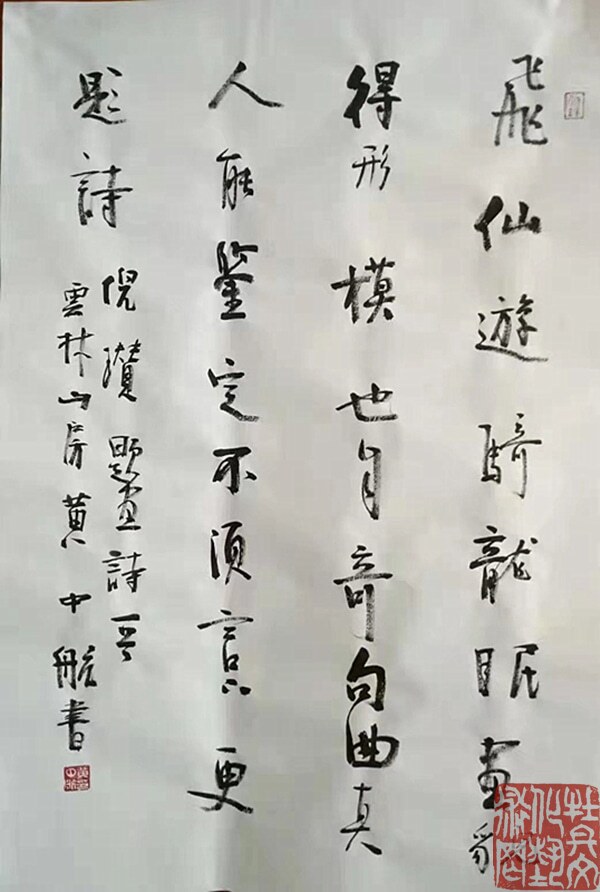 飛仙遊騎龍眠畫貌
得形模也自奇句曲真
人能鑒定不須言更
題詩
倪瓚題畫詩一首
雲林山房黃中航書